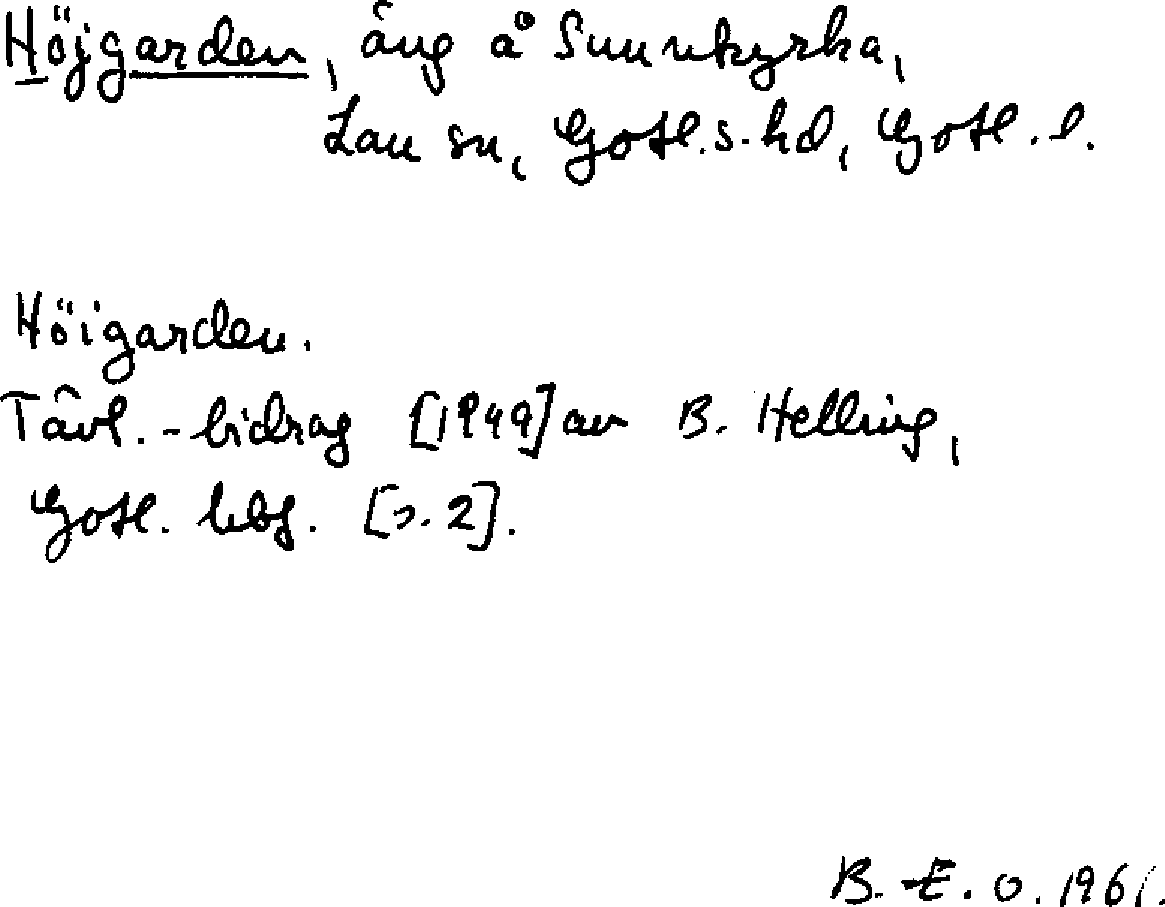 Höjgarden, äng å Sunnkyrka,
Lau sn, Gotl. s. hd, Gotl. l.
Höigarden.
Tävl.-bidrag [1949] av B. Hellring,
Gotl. lubf. [s. 2].
B. E. O. 1961.